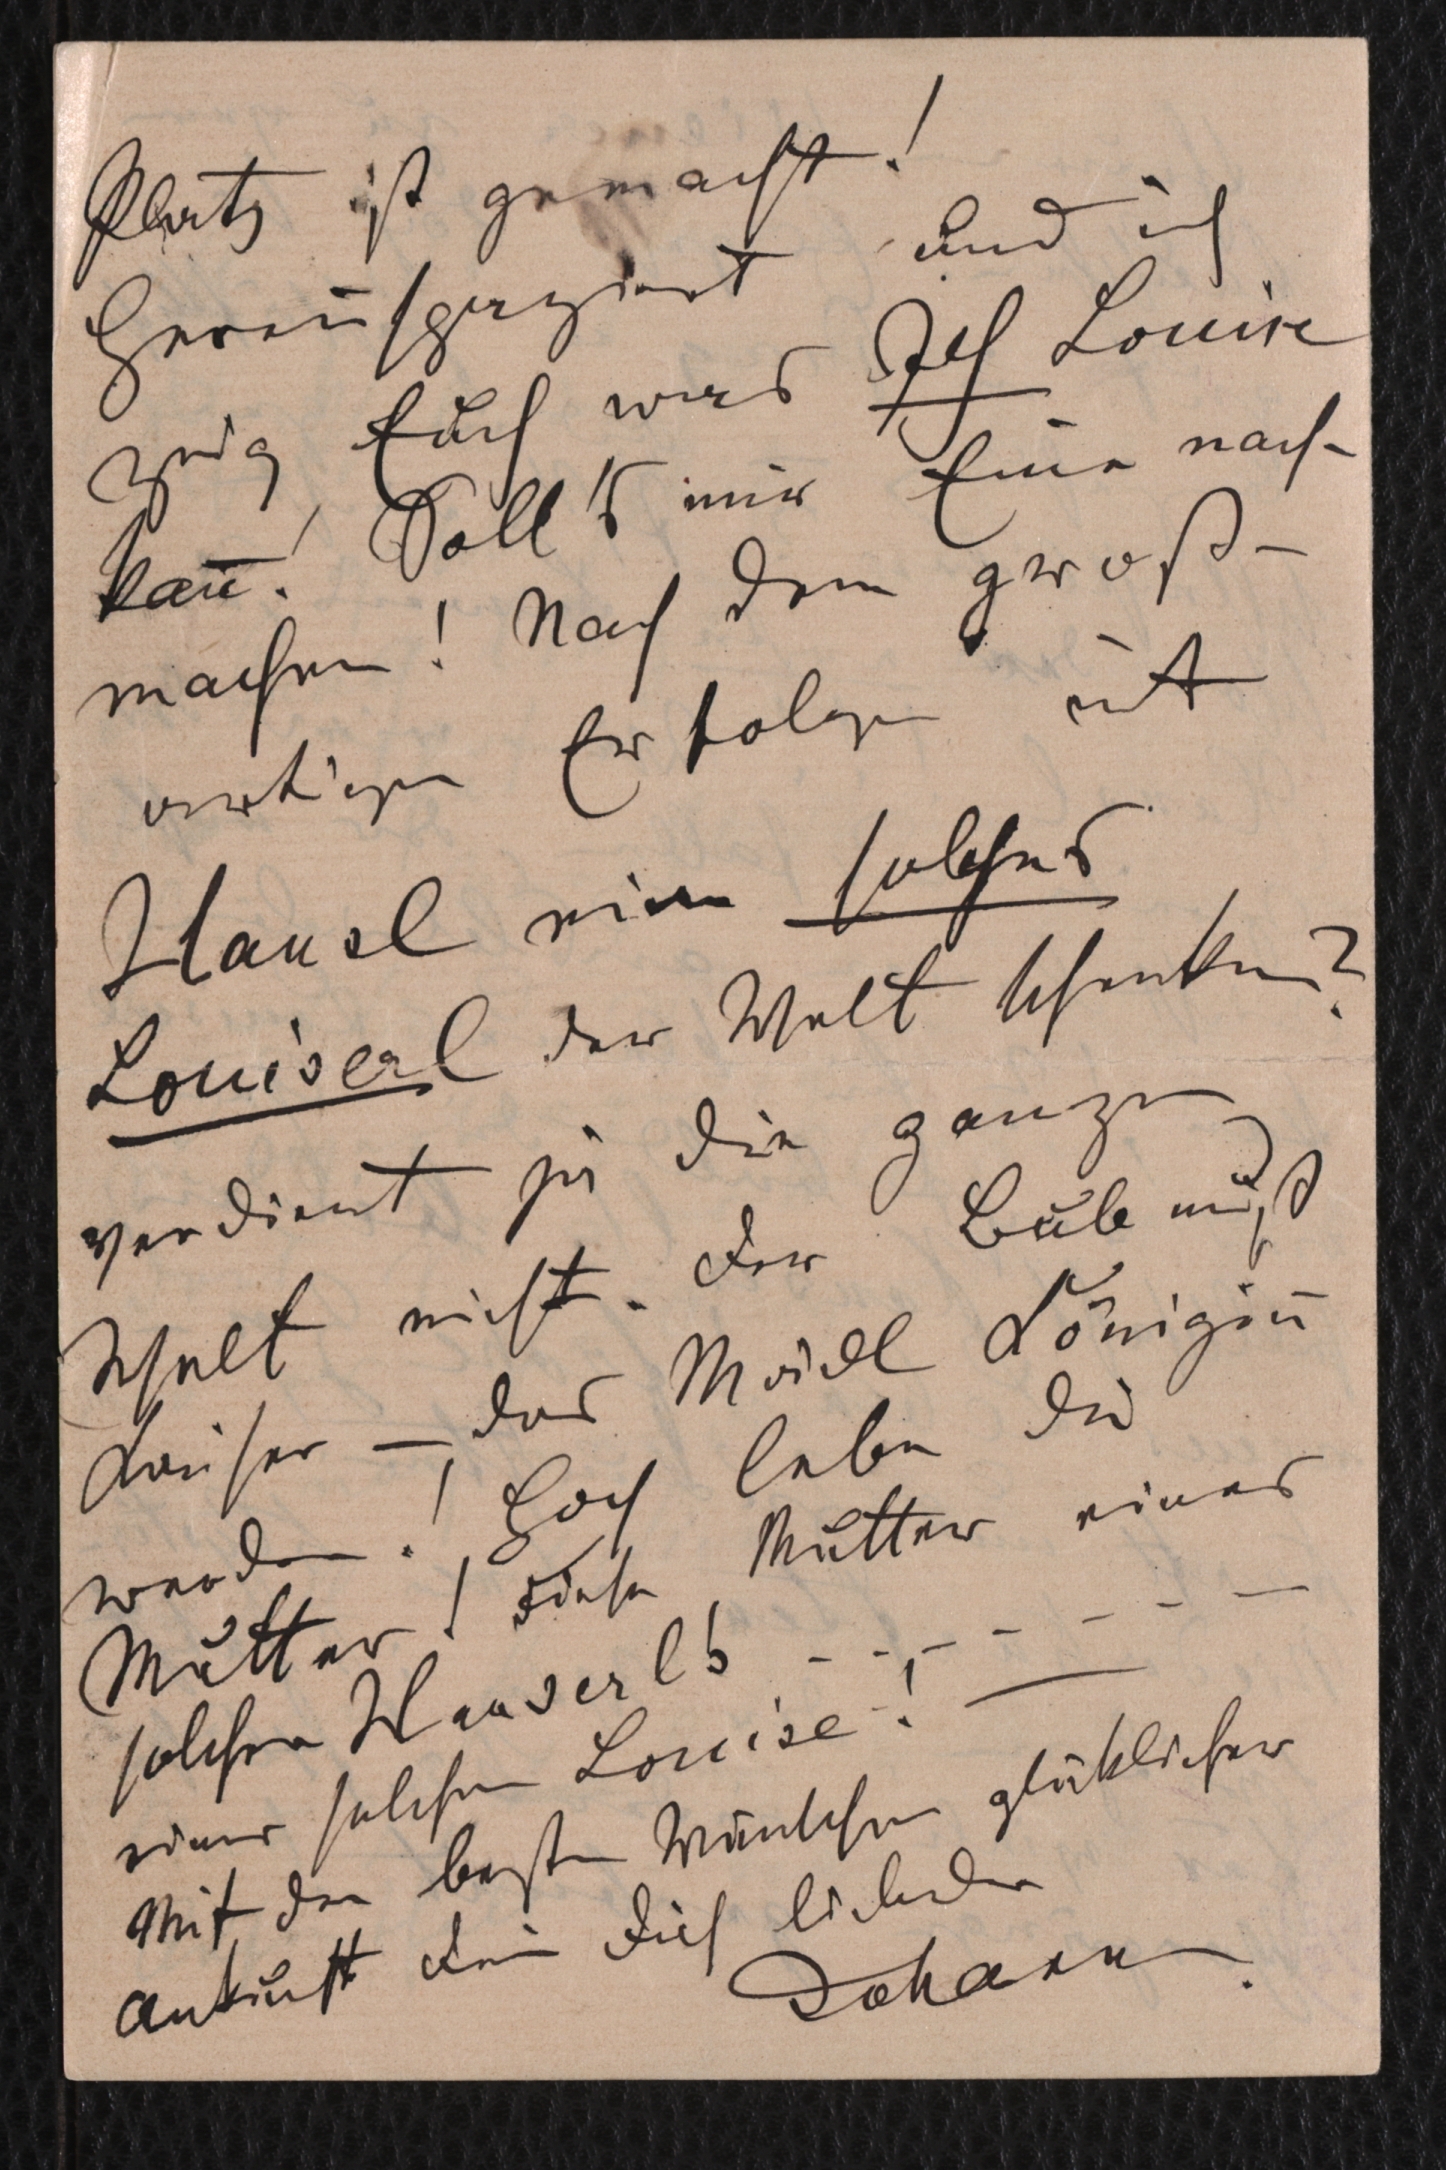 Platz ist gemacht!
Herausspaziert und ich
zeig Euch was Ich Louise
kañ! Soll's mir Eine nach-
machen! Nach dem groß-
artigen Erfolgen mit
Hansl ein solches
Louiserl der Welt schenken?
verdient ja die ganze
Welt nicht. Der Bub muß
Kaiser –, das Maidl Königiñ
werden! Hoch lebe die
Mutter! Diese Mutter eines
solchen Hanserls - - - - - - -
einer solchen Louise!
Mit den besten Wünschen glücklicher
Ankunft Dein Dich liebender
Johann.